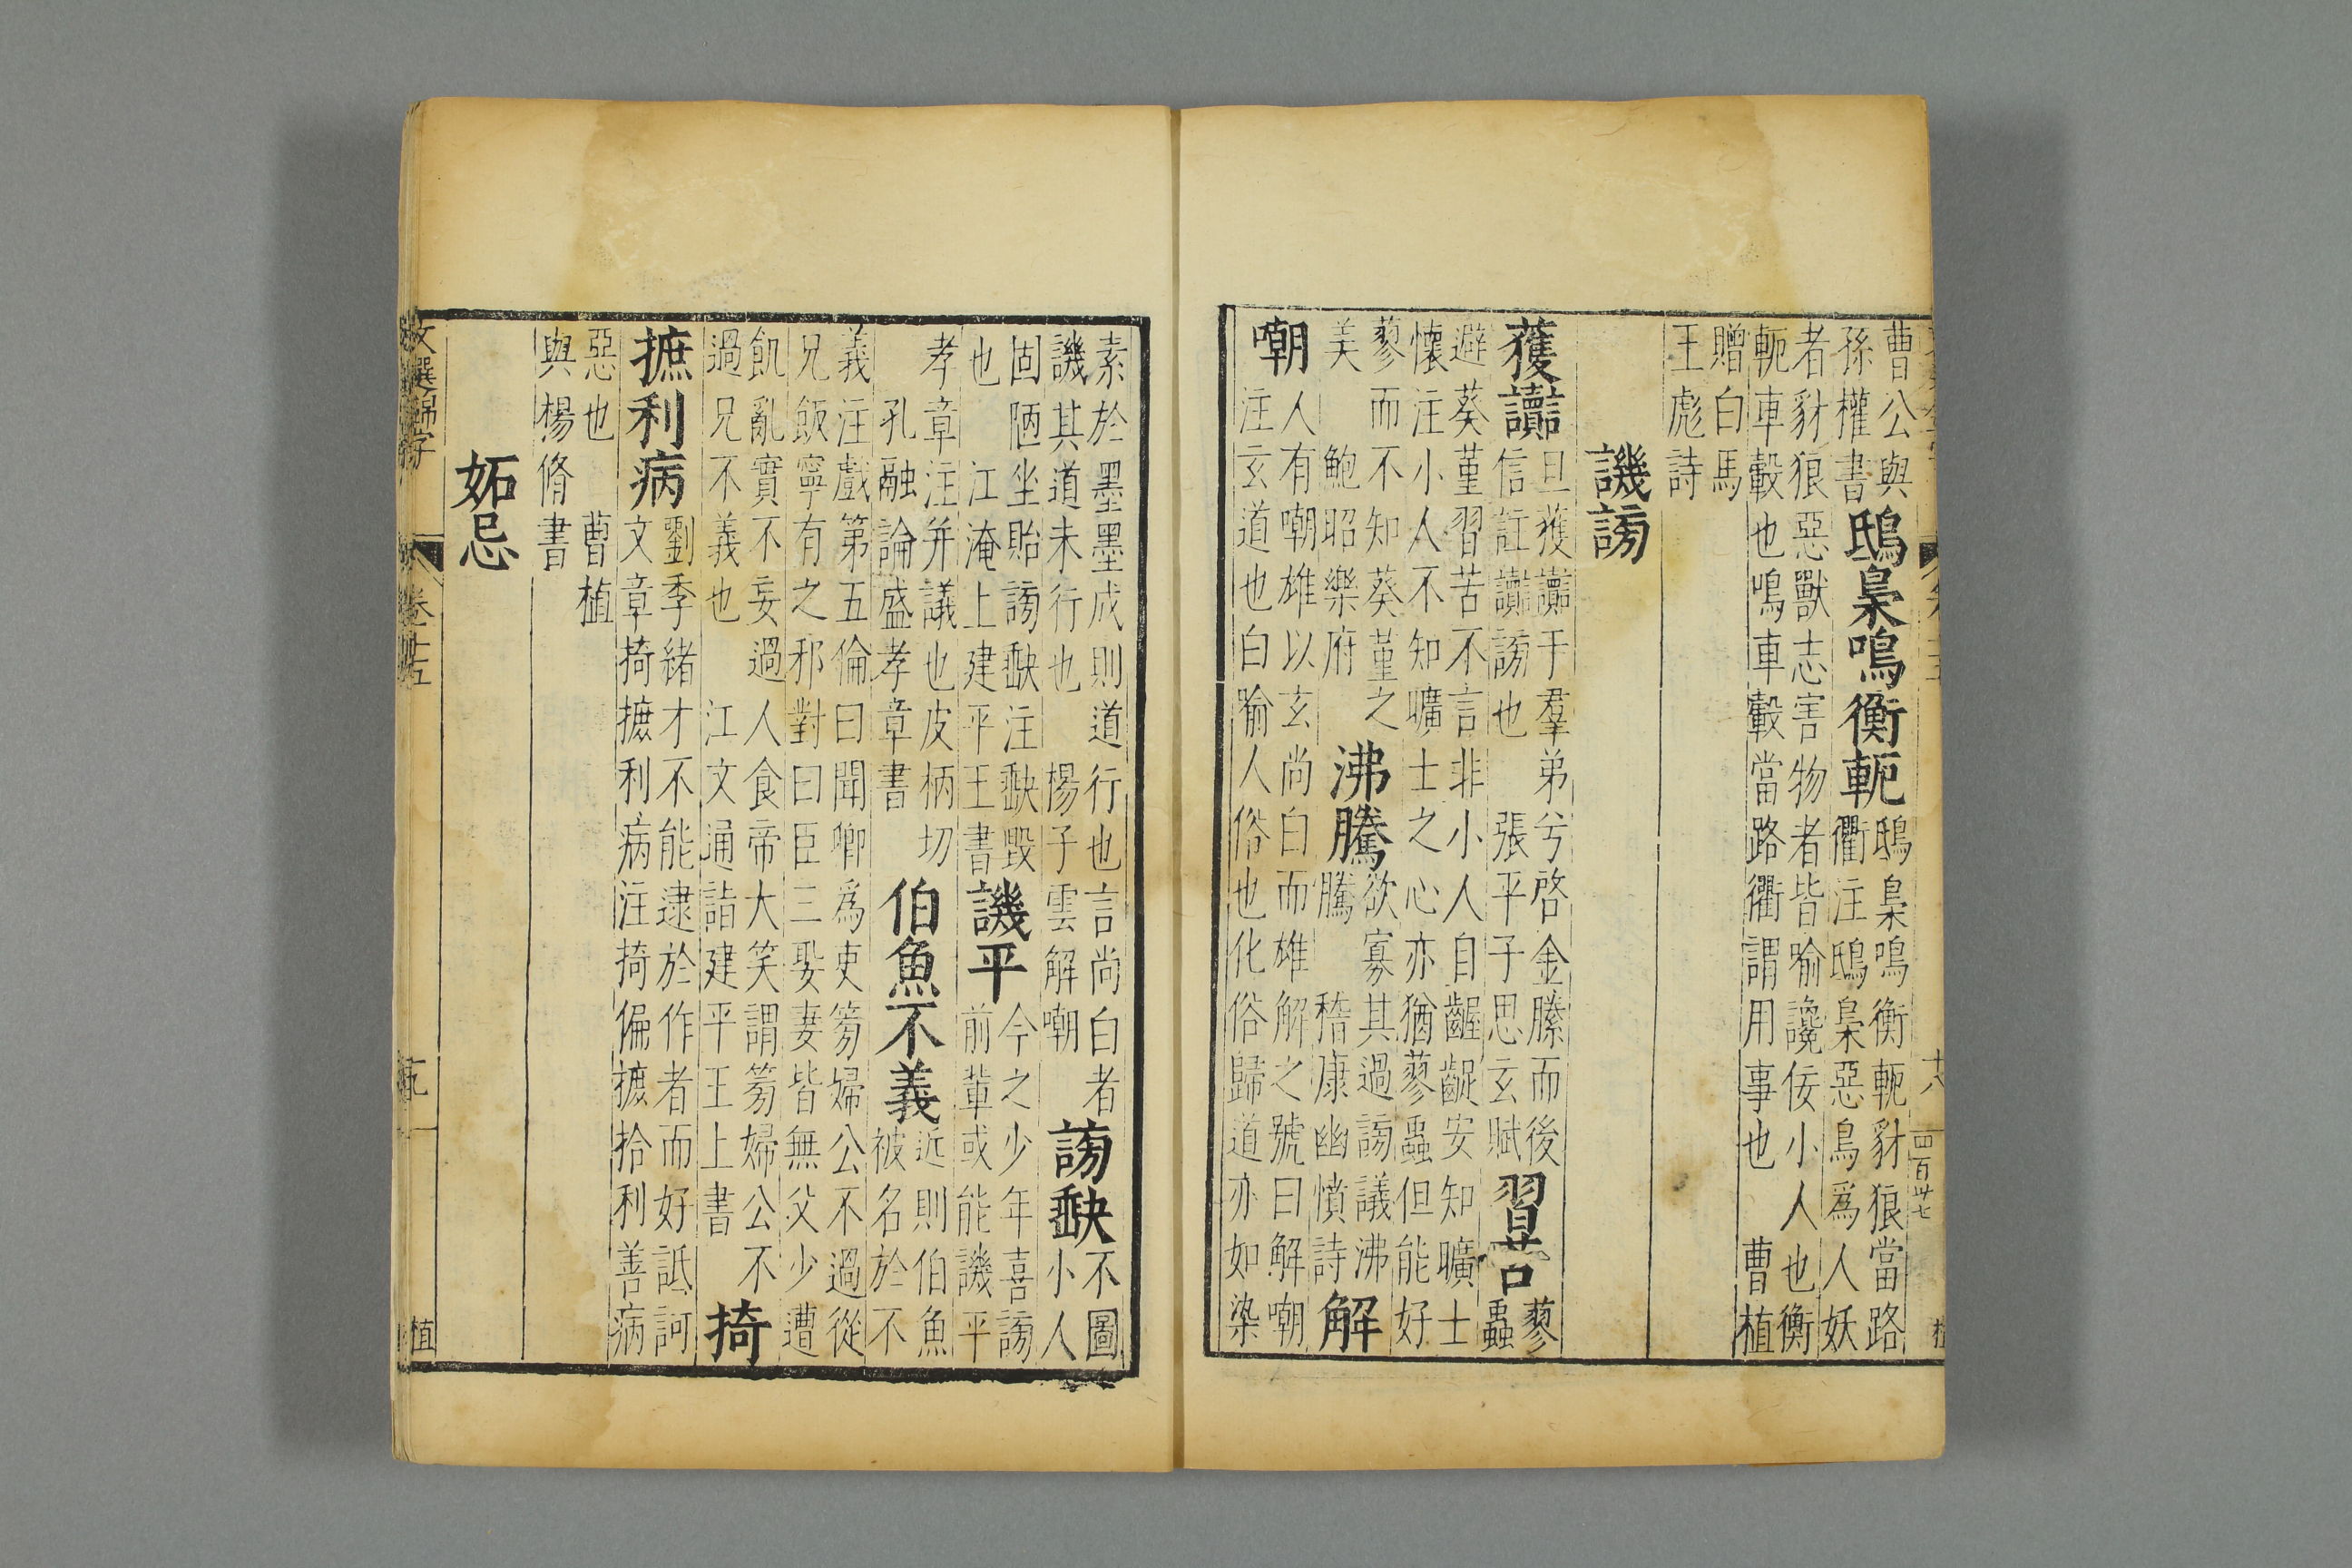 曹公與
孫權書
鴟梟鳴衡軛
鴟梟鳴衡軛豺狼當路
衢注鴟梟惡鳥爲人妖
者豺狼惡獸志害物者皆喻讒佞小人也衡
軛車轂也鳴車轂當路衢謂用事也 曹植
贈白馬
王彪詩
譏謗
獲讟
旦獲讟于羣弟兮啓金縢而後
信註讟謗也 張平子思玄賦
習苦
蓼
蟲
避葵堇習苦不言非小人自齷齪安知曠士
懷注小人不知曠士之心亦猶蓼蟲但能好
蓼而不知葵堇之
美 鮑昭樂府
沸騰
欲寡其過謗議沸
騰 嵇康幽憤詩
解
嘲
人有嘲雄以玄尚白而雄解之號曰解嘲
注玄道也白喻人俗也化俗歸道亦如染
十八
四百卅七
素於墨墨成則道行也言尚白者
譏其道未行也 楊子雲解嘲
謗缺
不圖
小人
固陋坐貽謗缺注缺毀
也 江淹上建平王書
譏平
今之少年喜謗
前輩或能譏平
孝章注并議也皮柄切
孔融論盛孝章書
伯魚不義
近則伯魚
被名於不
義注戲第五倫曰聞卿爲吏篣婦公不過從
兄飯寧有之邪對曰臣三娶妻皆無父少遭
飢亂實不妄過人食帝大笑謂篣婦公不
過兄不義也 江文通詣建平王上書
掎
摭利病
劉季緒才不能逮於作者而好詆訶
文章掎摭利病注掎偏摭拾利善病
惡也 曹植
與楊脩書
妬忌
文選錦字
卷十五
植